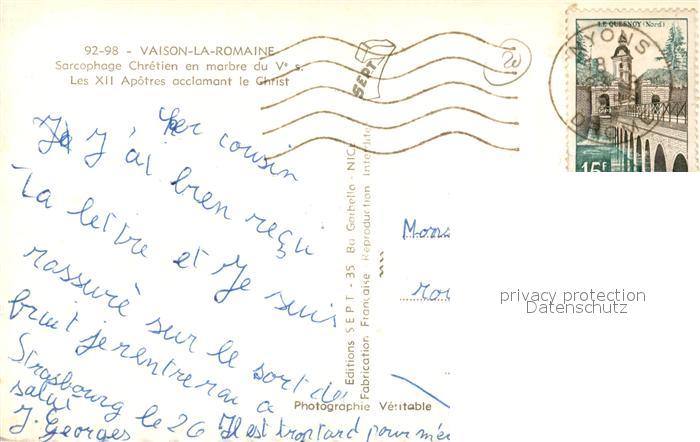 92-98 - VAISON-LA-ROMAINE
Sarcophage Chrétien en marbre du Ve s.
Les XII Apôtres acclamant le Christ
SEPT
LE QUESNOY (Nord)
NYONS
DROME
15F
Cher cousin
J'ai bien reçu
Ta lettre et Je suis
rassuré sur le sort de
bruit je rentrerai a
Strasbourg le 26 Il est trop tard pour mé
salut
J. Georges
Editions SEPT - 35 Bd Gorbella - NICE
Fabrication Française Reproduction Interdite
Photographie Véritable
Mons
rou
privacy protection
Datenschutz